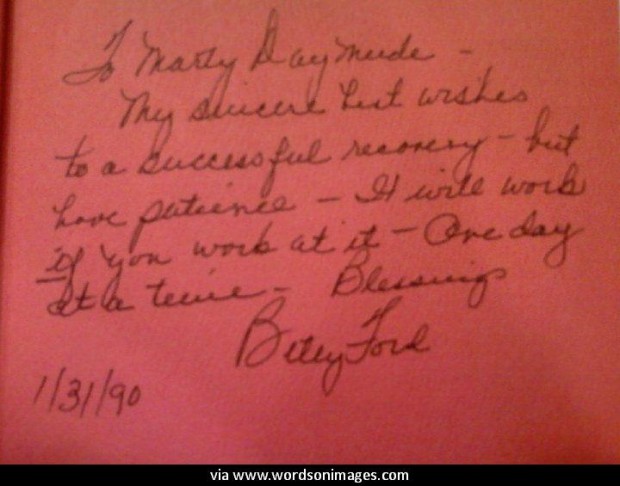 To Marty Daymude -
My sincere best wishes
to a successful recovery - but
have patience - It will work
if you work at it - One day
at a time - Blessings
Betty Ford
1/31/90
via www.wordsonimages.com